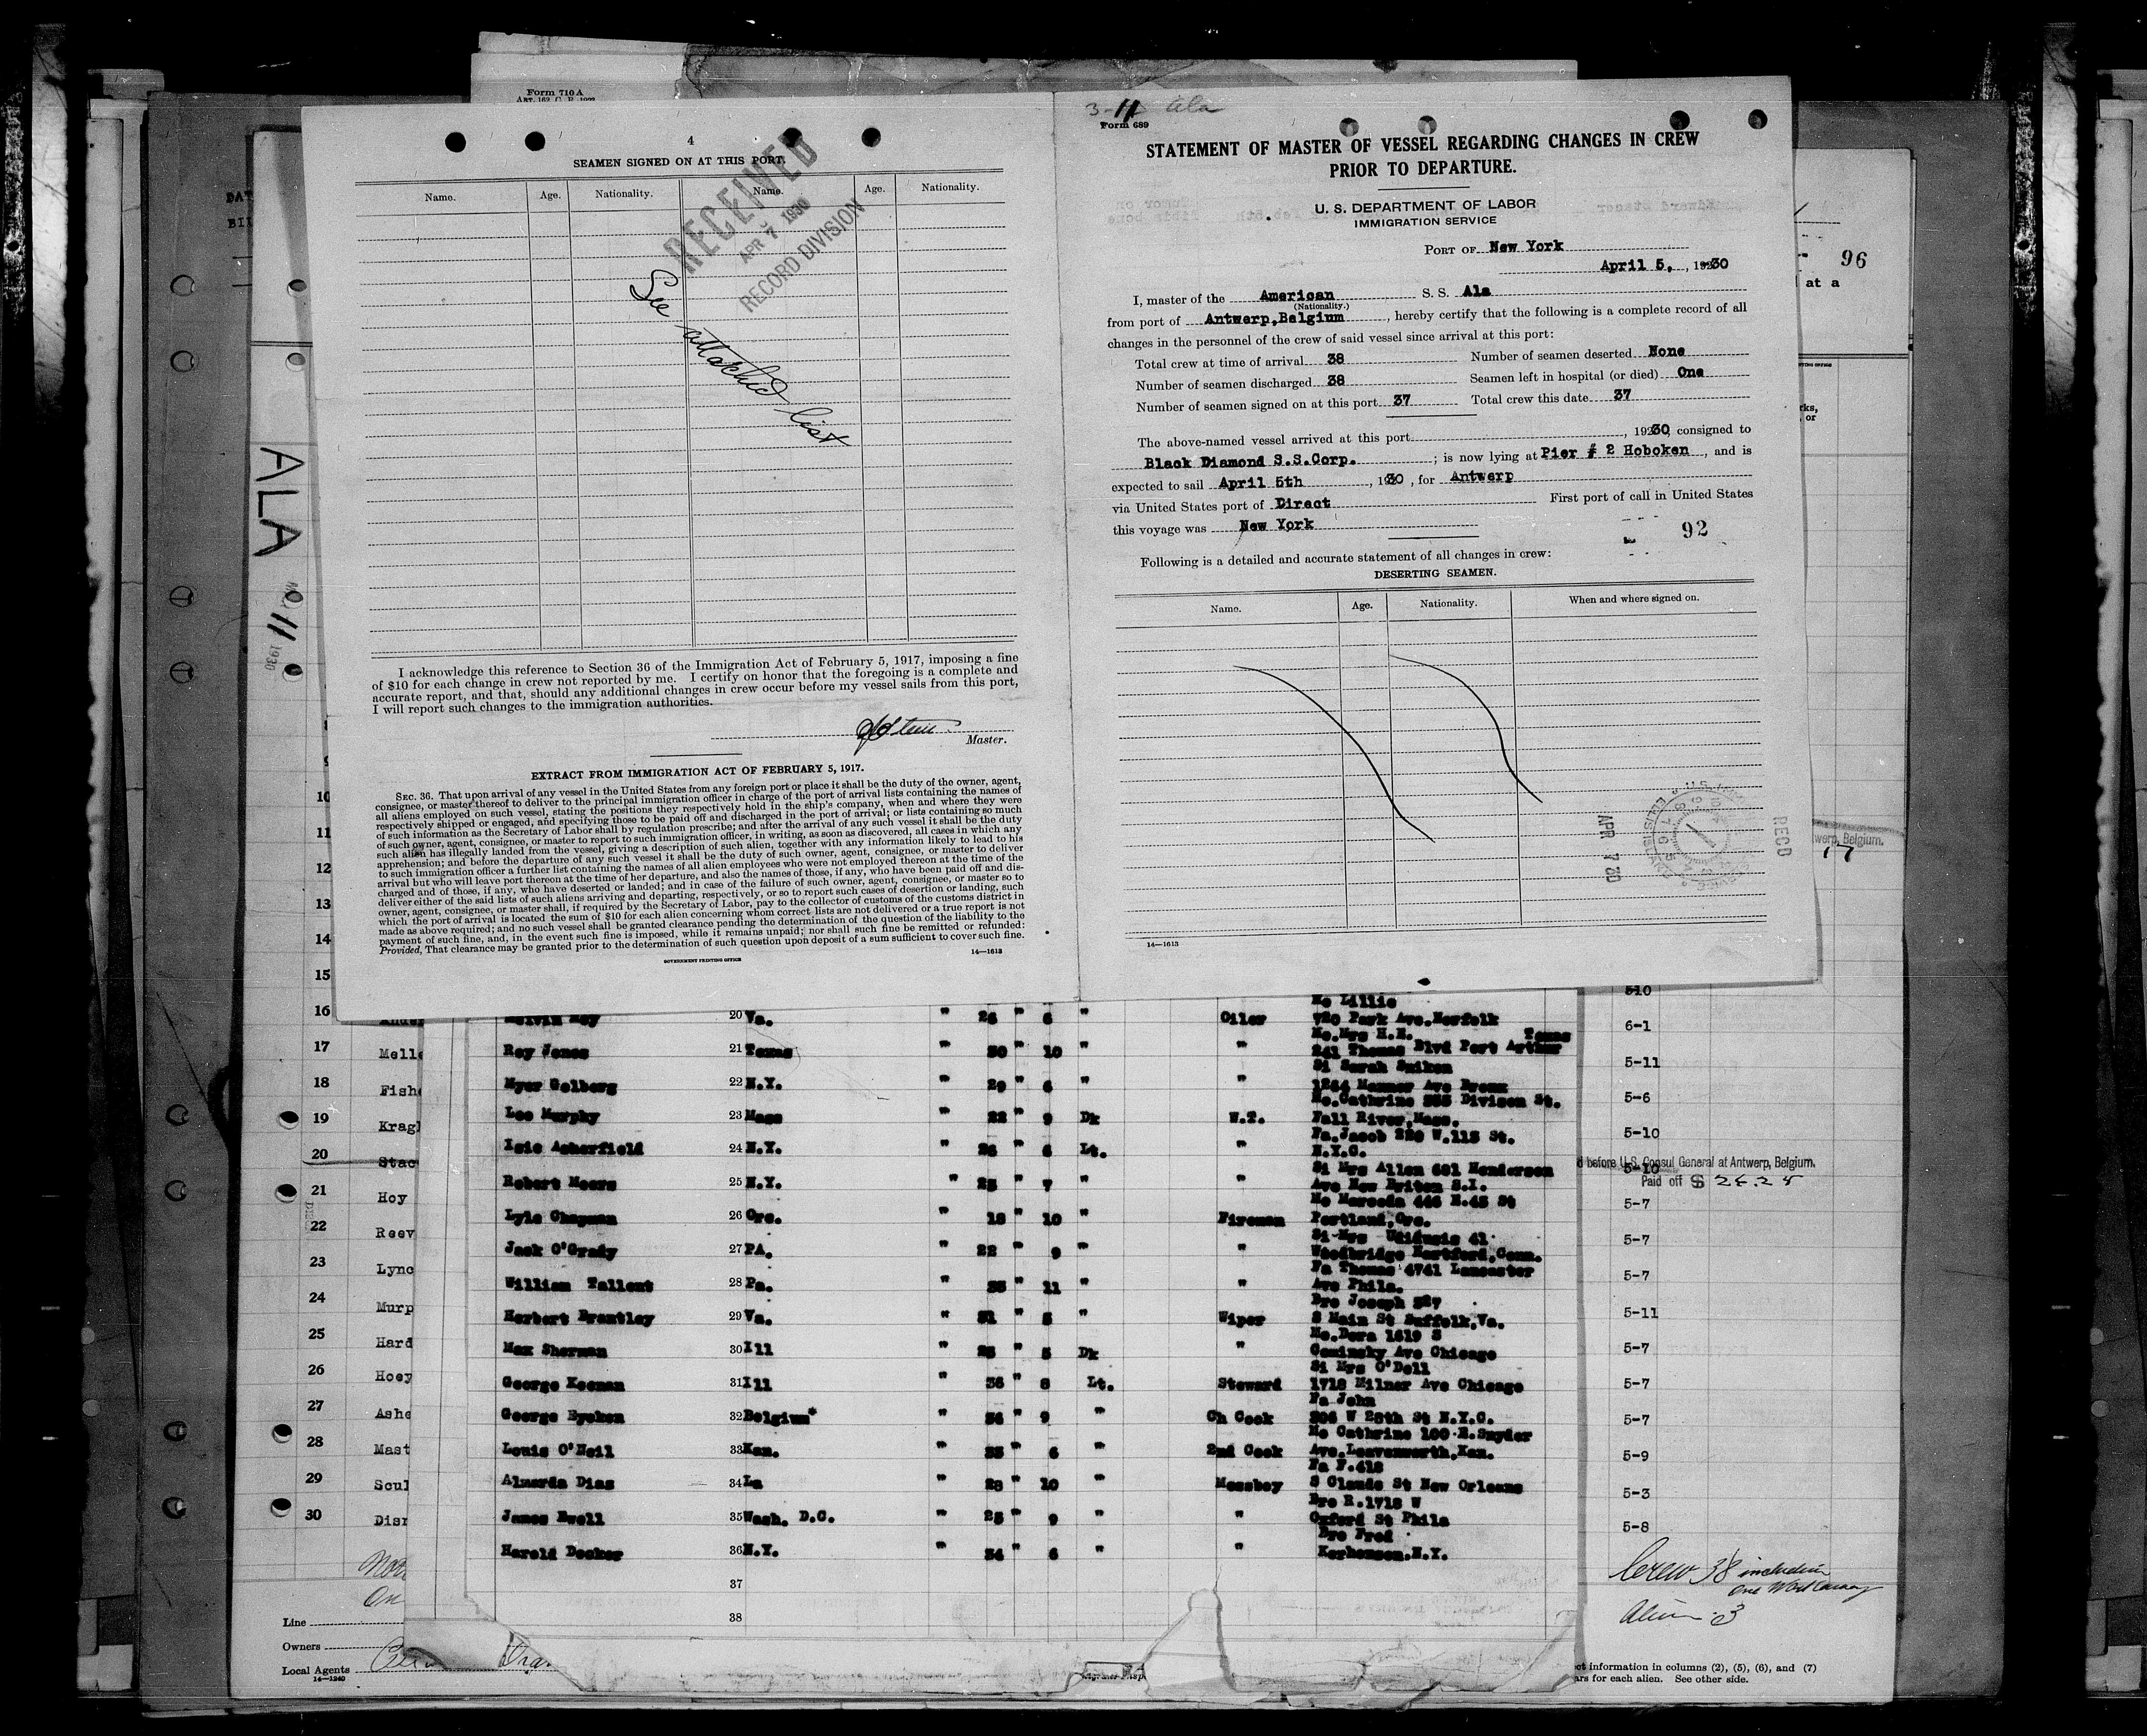 Form 710 A
4
SEAMEN SIGNED ON AT THIS PORT.
Name. Age. Nationality. Name. Age. Nationality.
RECEIVED
APR 7 1930
RECORD DIVISION
See attached list
I acknowledge this reference to Section 36 of the Immigration Act of February 5, 1917, imposing a fine
of $10 for each change in crew not reported by me. I certify on honor that the foregoing is a complete and
accurate report, and that, should any additional changes in crew occur before my vessel sails from this port,
I will report such changes to the immigration authorities.
Master.
EXTRACT FROM IMMIGRATION ACT OF FEBRUARY 5, 1917.
SEC. 36. That upon arrival of any vessel in the United States from any foreign port or place it shall be the duty of the owner, agent,
consignee, or master thereof to deliver to the principal immigration officer in charge of the port of arrival lists containing the names of
all aliens employed on such vessel, stating the positions they respectively hold in the ship's company, when and where they were
respectively shipped or engaged, and specifying those to be paid off and discharged in the port of arrival; or lists containing so much
of such information as the Secretary of Labor shall by regulation prescribe; and after the arrival of any such vessel it shall be the duty
of such owner, agent, consignee, or master to report to such immigration officer, in writing, as soon as discovered, all cases in which any
such alien has illegally landed from the vessel, giving a description of such alien, together with any information likely to lead to his
apprehension; and before the departure of any such vessel it shall be the duty of such owner, agent, consignee, or master to deliver
to such immigration officer a further list containing the names of all alien employees who were not employed thereon at the time of the
arrival but who will leave port thereon at the time of her departure, and also the names of those, if any, who have been paid off and dis-
charged and of those, if any, who have deserted or landed; and in case of the failure of such owner, agent, consignee, or master so to
deliver either of the said lists of such aliens arriving and departing, respectively, or so to report such cases of desertion or landing, such
owner, agent, consignee, or master shall, if required by the Secretary of Labor, pay to the collector of customs of the customs district in
which the port of arrival is located the sum of $10 for each alien concerning whom correct lists are not delivered or a true report is not
made as above required; and no such vessel shall be granted clearance pending the determination of the question of the liability to the
payment of such fine, and, in the event such fine is imposed, while it remains unpaid; nor shall such fine be remitted or refunded:
Provided, That clearance may be granted prior to the determination of such question upon deposit of a sum sufficient to cover such fine.
GOVERNMENT PRINTING OFFICE 14—1613
3-11 Ala
Form 689
STATEMENT OF MASTER OF VESSEL REGARDING CHANGES IN CREW
PRIOR TO DEPARTURE.
U. S. DEPARTMENT OF LABOR
IMMIGRATION SERVICE
PORT OF New York
April 5, , 1930
I, master of the American S. S. Ala
(Nationality.)
from port of Antwerp,Belgium , hereby certify that the following is a complete record of all
changes in the personnel of the crew of said vessel since arrival at this port:
Total crew at time of arrival 38 Number of seamen deserted None
Number of seamen discharged 38 Seamen left in hospital (or died) One
Number of seamen signed on at this port 37 Total crew this date 37
The above-named vessel arrived at this port , 1930, consigned to
Black Diamond S.S.Corp. ; is now lying at Pier # 2 Hoboken , and is
expected to sail April 5th , 1930 , for Antwerp
via United States port of Direct First port of call in United States
this voyage was New York
92
Following is a detailed and accurate statement of all changes in crew:
DESERTING SEAMEN.
Name. Age. Nationality. When and where signed on.
APR 7 30
RECD
14—1613
96
at a
ALA
11 1930
Melvin Hoy 20 Va. " 26 " 6 " Oiler
Mo Lillie
720 Park Ave.Norfolk
Roy Jones 21 Texas " 30 " 10 " "
Mo.Mrs H.E. Texas
241 Thomas Blvd Port Arthur
Myer Golberg 22 N.Y. " 29 " 6 " "
Si Sarah Sniken
1264 Manner Ave Bronx
Leo Murphy 23 Mass " 22 " 9 Dk W.T.
Mo.Cathrine 355 Divison St.
Fall River,Mass.
Isie Asherfield 24 N.Y. " 26 " 6 Lt. "
Fa.Jacob 220 W.113 St.
N.Y.C.
Robert Moore 25 N.Y. " 23 " 7 " "
Si Mrs Allen 681 Henderson
Ave New Briton S.I.
Lyle Chapman 26 Ore. " 18 " 10 " Fireman
Mo Merceda 446 E.45 St
Portland,Ore.
Jack O'Grady 27 PA. " 22 " 9 " "
Woodbridge Hartford,Conn.
William Tallent 28 Pa. " 35 " 11 " "
Fa Thomas 4741 Lancaster
Ave Phila.
Herbert Brantley 29 Va. " 31 " 5 " Wiper
Bro Joseph 327
S Main St Suffolk,Va.
Max Sherman 30 Ill " 25 " 5 Dk "
Mo.Dora 1619 S
Cominsky Ave Chicago
George Keenan 31 Ill " 36 " 8 Lt. Steward
Si Mrs O'Dell
1718 Milner Ave Chicago
George Eysken 32 Belgium* " 34 " 9 " Ch Cook
Fa John
306 W 28th St N.Y.C.
Louis O'Neil 33 Kan. " 35 " 6 " 2nd Cook
Mo Cathrine 100 E.Snyder
Ave.Leavenworth,Kan.
Almerda Dias 34 La " 28 " 10 " Messboy
Fa F.418
S Claude St New Orleans
James Ewell 35 Wash. D.C. " 25 " 9 " "
Bro R.1718 W
Oxford St Phila
Harold Decker 36 N.Y. " 34 " 6 " "
Bro Fred
Kerhonson.N.Y.
37
38
10
11
12
13
14
15
16
17 Melle
18 Fishe
19 Kragh
20 Stac
21 Hoy
22 Reev
23 Lync
24 Murp
25 Hard
26 Hoey
27 Ashe
28 Mast
29 Scul
30 Disr
Line
Owners
Local Agents
14—1240
5-10
6-1
5-11
5-6
5-10
5-10
5-7
5-7
5-7
5-11
5-7
5-7
5-7
5-9
5-3
5-8
werp, Belgium.
17
d before U.S. Consul General at Antwerp, Belgium.
Paid off $ 26.24
Crew 38 including
one Workaway
Aliens 3
ct information in columns (2), (5), (6), and (7)
ars for each alien. See other side.